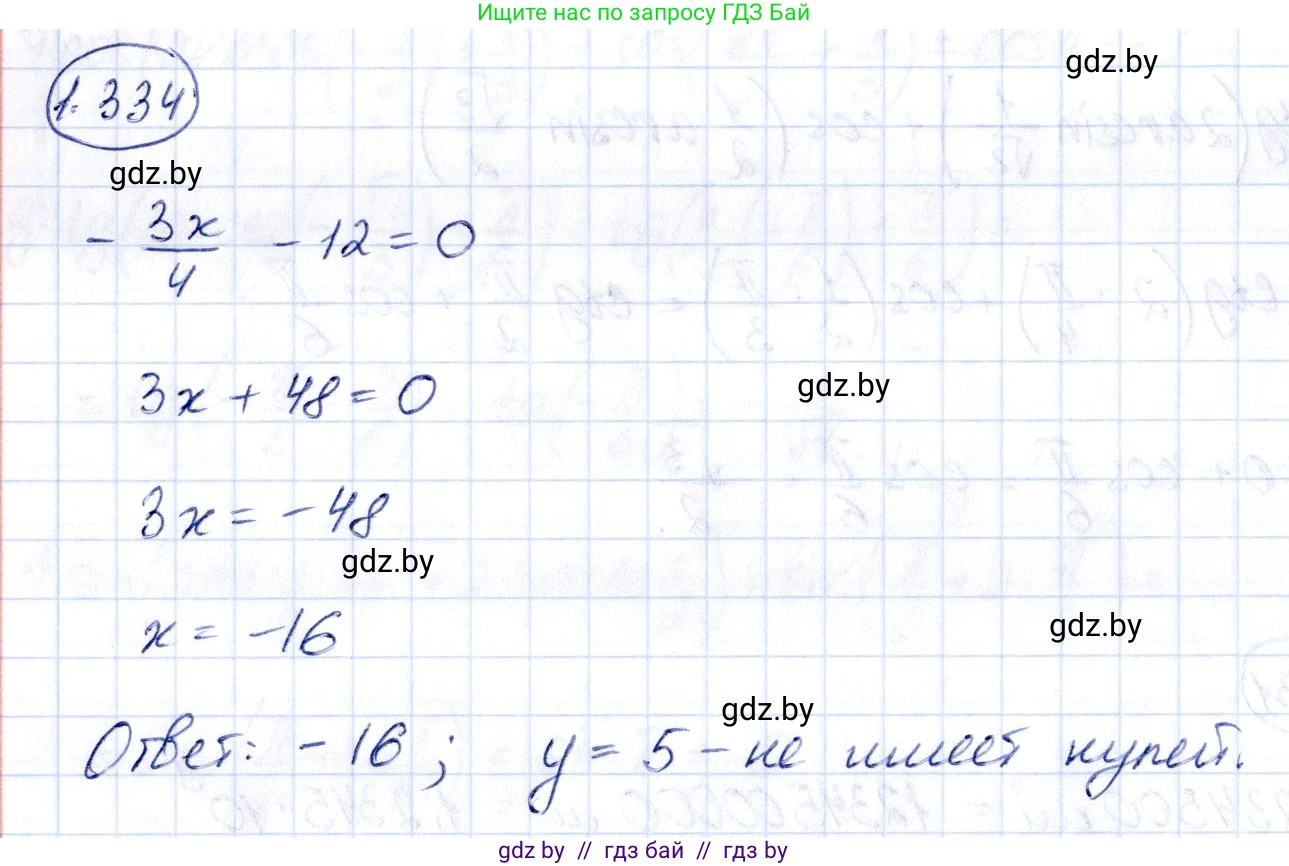 Ищите нас по запросу ГДЗ Бай
gdz.by
1.334
gdz.by
- 3x/4 - 12 = 0
3x + 48 = 0
gdz.by
3x = -48
gdz.by
x = -16
gdz.by
gdz.by
Ответ: -16; y = 5 - не имеет нулей.
gdz.by // гдз бай // гдз by